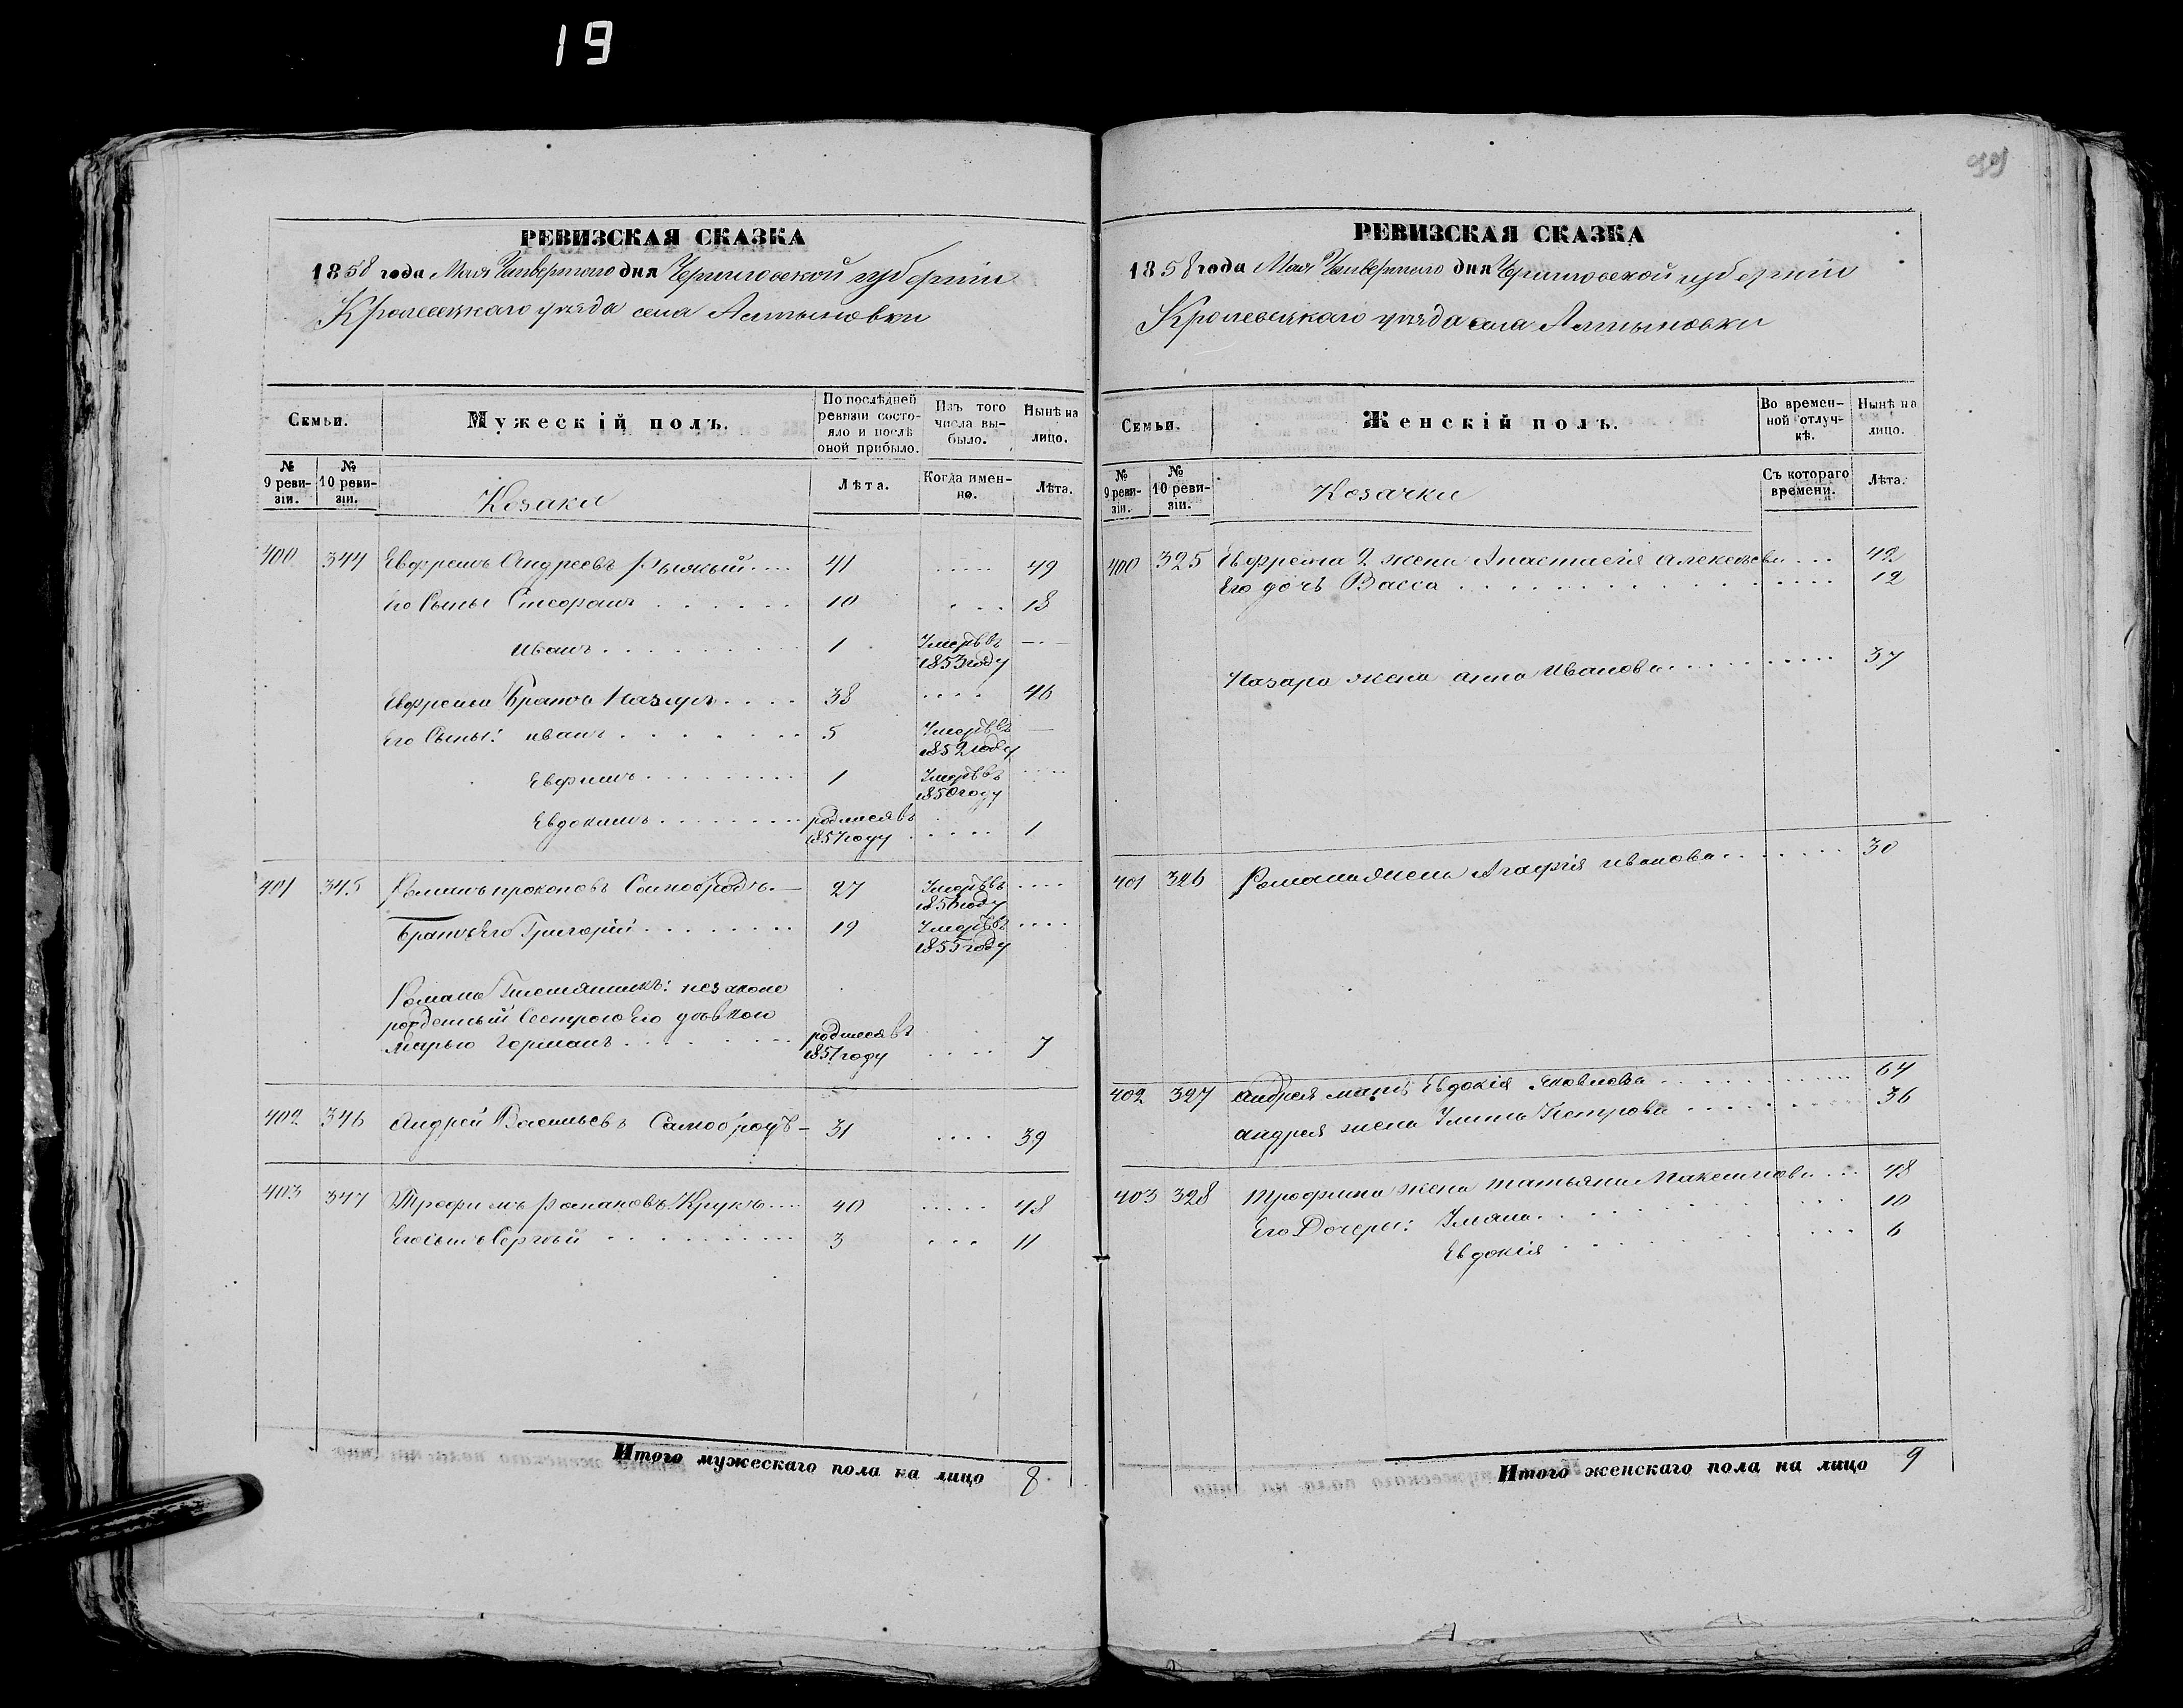 19
99
РЕВИЗСКАЯ СКАЗКА
1858 года Мая Четвертого дня Черниговской губернии
Кролевецкаго уезда села Алтыновки
Семьи.
Мужескій полъ.
По послѣдней ревизіи состо-
яло и послѣ
оной прибыло.
Изъ того
числа вы-
было.
Нынѣ на
лицо.
№
9 реви-
зіи.
№
10 реви-
зіи.
Козаки
Лѣта.
Когда имен-
но.
Лѣта.
400 344 Евфремъ Андреевъ 41 49
Его Сыны Стефанъ 10 18
Иванъ 1 Умеръ въ —
1853 году
Евфрема Братъ Назаръ 38 46
Его Сыны: иванъ 5 Умеръ въ —
1852 году
Евфимъ 1 Умеръ въ
1850 году
Евдокимъ родился въ
1857 году 1
401 345 Романъ прокоповъ Самобродъ — 27 Умеръ въ
1856 году
Братъ Его Григорій 19 Умеръ въ
1855 году
Романа Племянникъ: незаконо
рожденный Сестрою Его девкою
Марью Германъ родился въ
1851 году 7
402 346 Андрей Васильевъ Самобродъ — 31 39
403 347 Трофимъ романовъ Крукъ 40 48
Его сынъ Сергѣй 3 11
Итого мужескаго пола на лицо 8
РЕВИЗСКАЯ СКАЗКА
1858 года Мая Четвертого дня Черниговской губерніи
Кролевецкаго уезда села Алтыновки
Семьи.
Женскій полъ.
Во времен-
ной отлуч-
кѣ.
Нынѣ на
лицо.
№
9 реви-
зіи.
№
10 реви-
зіи.
Козачки
Съ котораго
времени.
Лѣта.
400 325 Евфрема 2 жена Анастасія алексѣева 42
Его дочь Васса 12
Назара жена анна Иванова 37
401 326 Романа жена Агафія иванова 30
402 327 андрея мать Евдокія Яковлева 64
андрея жена Улита Петрова 36
403 328 Трофима жена татьяна Максимова 48
Его Дочери: Ульяна 10
Евдокія 6
Итого женскаго пола на лицо 9